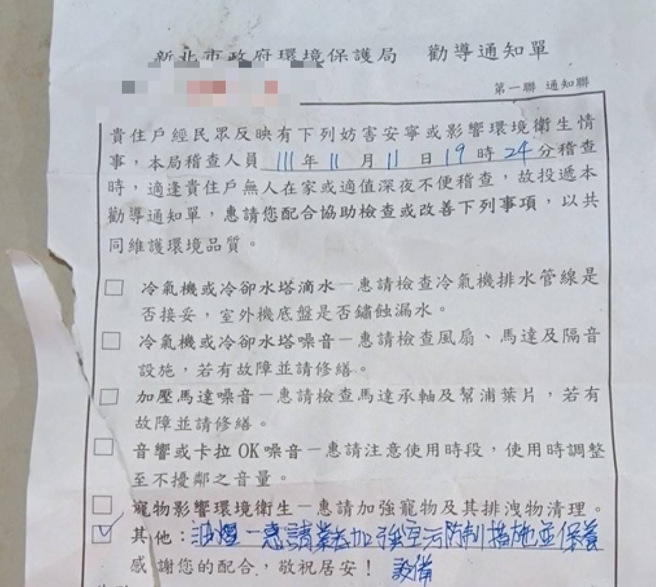 新北市政府環境保護局　勸導通知單
第一聯　通知聯
貴住戶經民眾反映有下列妨害安寧或影響環境衛生情
事，本局稽查人員 111 年 11 月 11 日 19 時 24 分稽查
時，適逢貴住戶無人在家或適值深夜不便稽查，故投遞本
勸導通知單，惠請您配合協助檢查或改善下列事項，以共
同維護環境品質。
□ 冷氣機或冷卻水塔滴水－惠請檢查冷氣機排水管線是
否接妥，室外機底盤是否鏽蝕漏水。
□ 冷氣機或冷卻水塔噪音－惠請檢查風扇、馬達及隔音
設施，若有故障並請修繕。
□ 加壓馬達噪音－惠請檢查馬達承軸及幫浦葉片，若有
故障並請修繕。
□ 音響或卡拉 OK 噪音－惠請注意使用時段，使用時調整
至不擾鄰之音量。
□ 寵物影響環境衛生－惠請加強寵物及其排洩物清理。
☑ 其他：油煙－惠請業者加強空污防制措施並保養
感謝您的配合，敬祝居安！ 設備